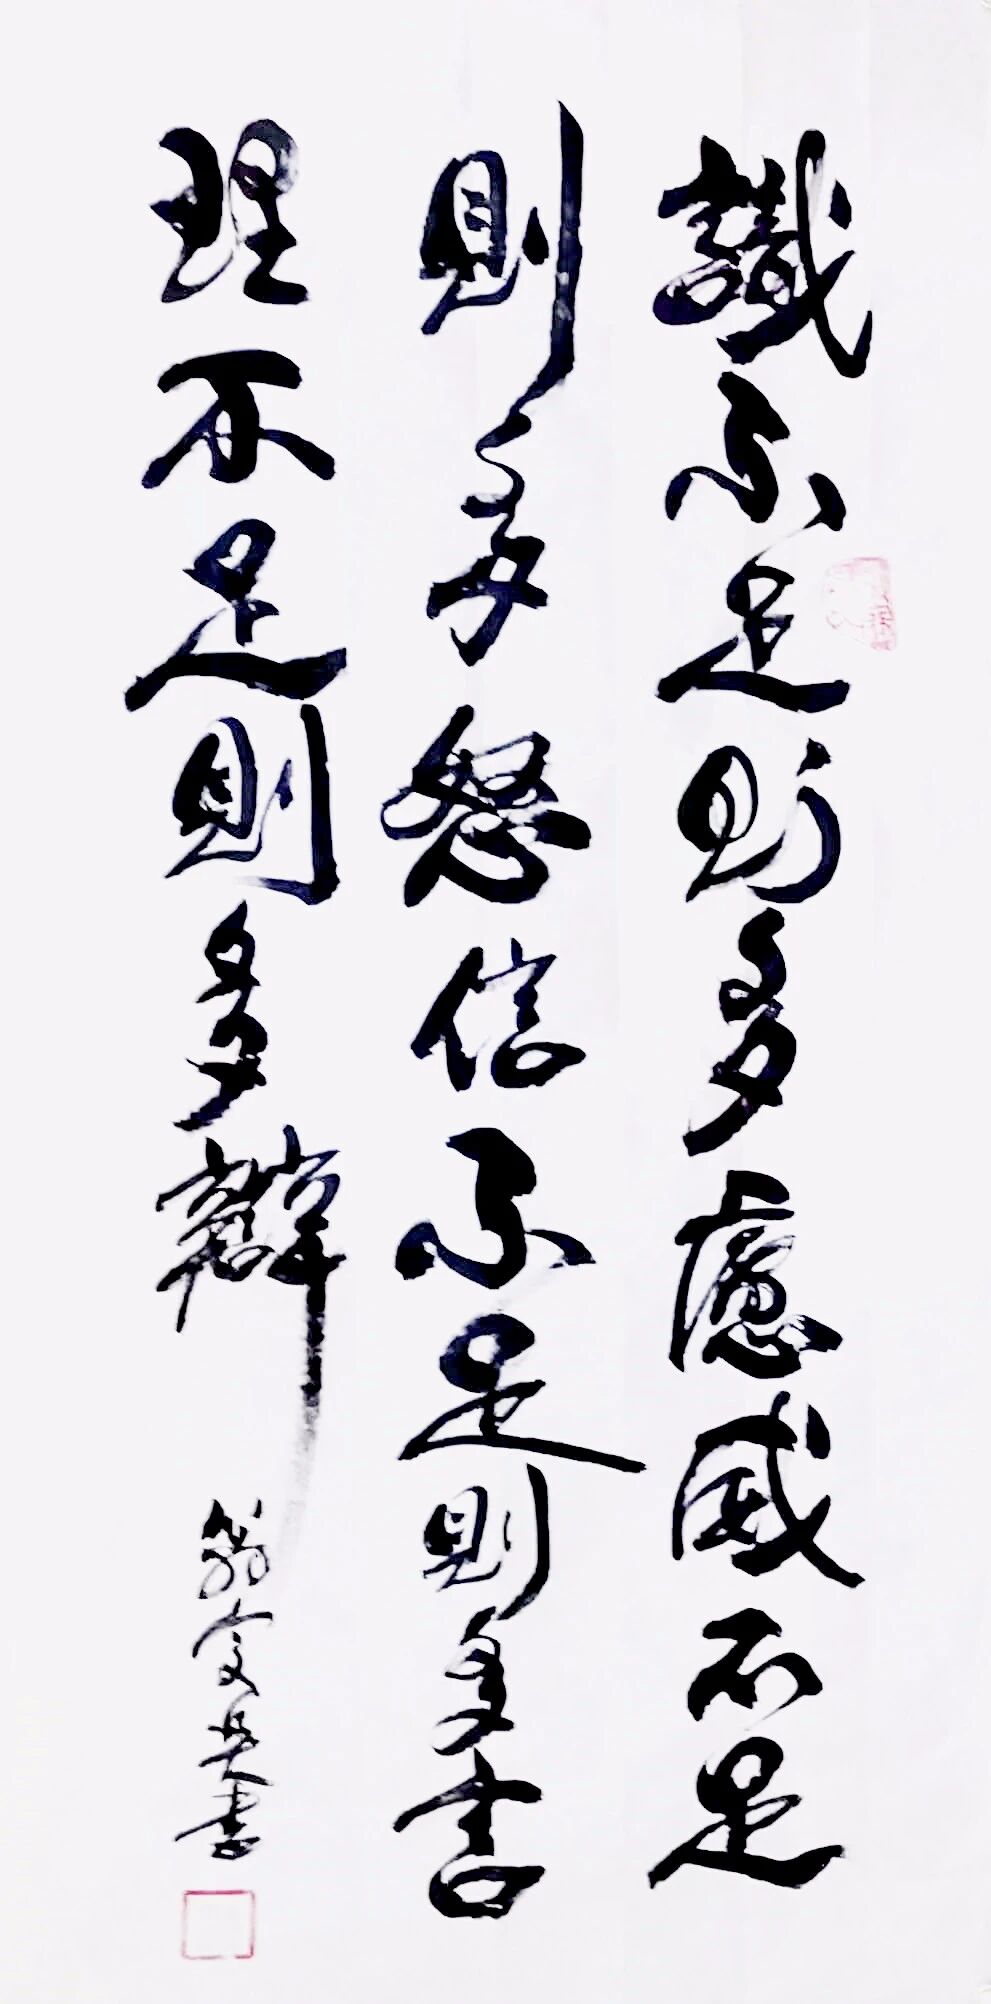 識不足則多慮威不足
則多怒信不足則多言
理不足則多辯
翁文光書